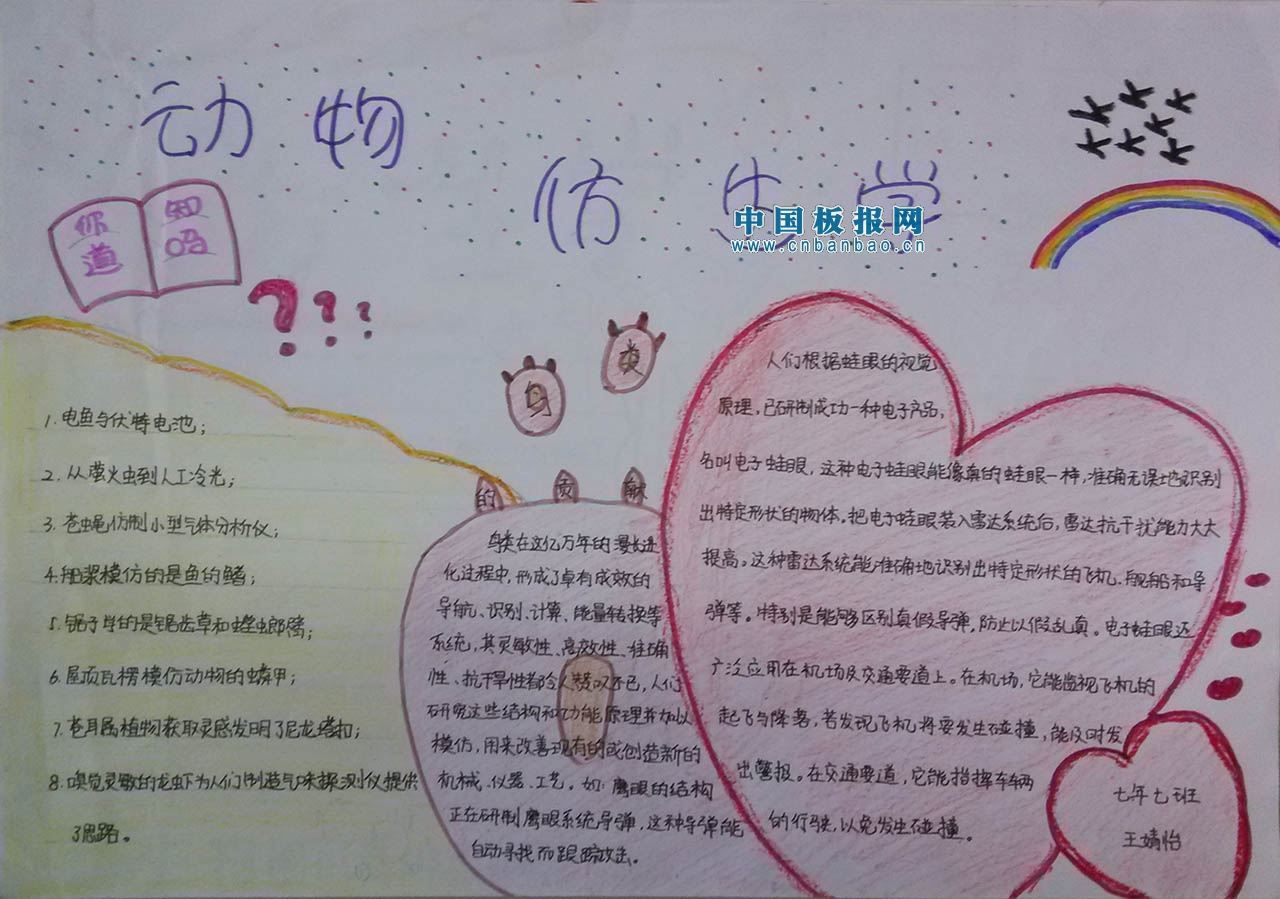 动物
仿生学
中国板报网
www.cnbanbao.cn
你知
道吗
???
1.电鱼与伏特电池；
2.从萤火虫到人工冷光；
3.苍蝇仿制小型气体分析仪；
4.船桨模仿的是鱼的鳍；
5.锯子学的是锯齿草和螳螂臂；
6.屋顶瓦楞模仿动物的鳞甲；
7.苍耳属植物获取灵感发明了尼龙搭扣；
8.嗅觉灵敏的龙虾为人们制造气味探测仪提供
了思路。
鸟类
的贡献
鸟类在这亿万年的漫长进
化过程中，形成了卓有成效的
导航、识别、计算、能量转换等
系统，其灵敏性、高效性、准确
性、抗干旱性都令人赞叹不已，人们
研究这些结构和功能原理并加以
模仿，用来改善现有的或创造新的
机械、仪器、工艺。如：鹰眼的结构
正在研制鹰眼系统导弹，这种导弹能
自动寻找而跟踪攻击。
人们根据蛙眼的视觉
原理，已研制成功一种电子产品，
名叫电子蛙眼，这种电子蛙眼能像真的蛙眼一样，准确无误地识别
出特定形状的物体。把电子蛙眼装入雷达系统后，雷达抗干扰能力大大
提高。这种雷达系统能准确地识别出特定形状的飞机、舰船和导
弹等。特别是能够区别真假导弹，防止以假乱真。电子蛙眼还
广泛应用在机场及交通要道上。在机场，它能监视飞机的
起飞与降落，若发现飞机将要发生碰撞，能及时发
出警报。在交通要道，它能指挥车辆
的行驶，以免发生碰撞。
七年七班
王婧怡